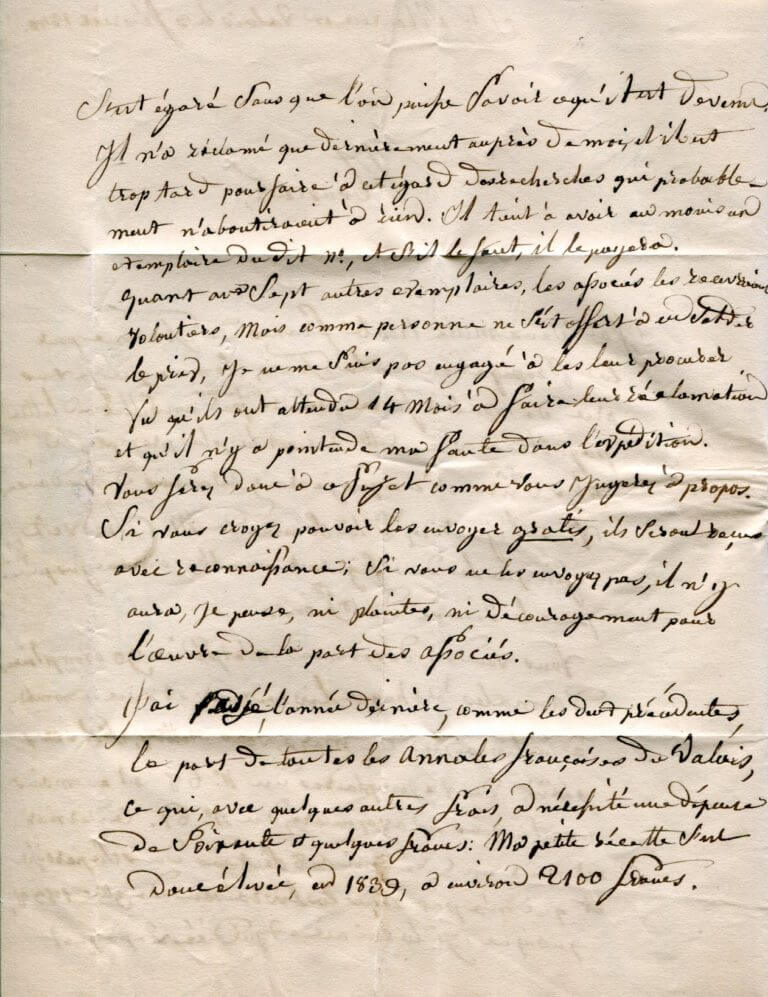 S'est égaré sans que l'on puisse savoir ce qu'il est devenu.
Il n'a réclamé que dernièrement auprès de moi, et il est
trop tard pour faire à cet égard des recherches qui probable-
ment n'aboutiraient à rien. Il tient à avoir au moins un
exemplaire du dit n°, et s'il le faut, il le payera.
quant aux sept autres exemplaires, les associés les recevraient
volontiers, mais comme personne ne s'est offert à en solder
le prix, Je ne me suis pas engagé à les leur procurer
vu qu'ils ont attendu 14 mois à faire leur réclamation
et qu'il n'y a point eu de ma faute dans l'expédition.
Vous ferez donc à ce sujet comme vous Jugerez à propos.
Si vous croyez pouvoir les envoyer gratis, ils seront reçus
avec reconnaissance; Si vous ne les envoyez pas, il n'y
aura, Je pense, ni plaintes, ni découragement pour
l'œuvre de la part des associés.
J'ai payé, l'année dernière, comme les deux précédentes,
le port de toutes les Annales françaises du Valais,
ce qui, avec quelques autres frais, a nécessité une dépense
de soixante et quelques francs: Ma petite récette s'est
donc élevée, en 1839, à environ 2100 francs.